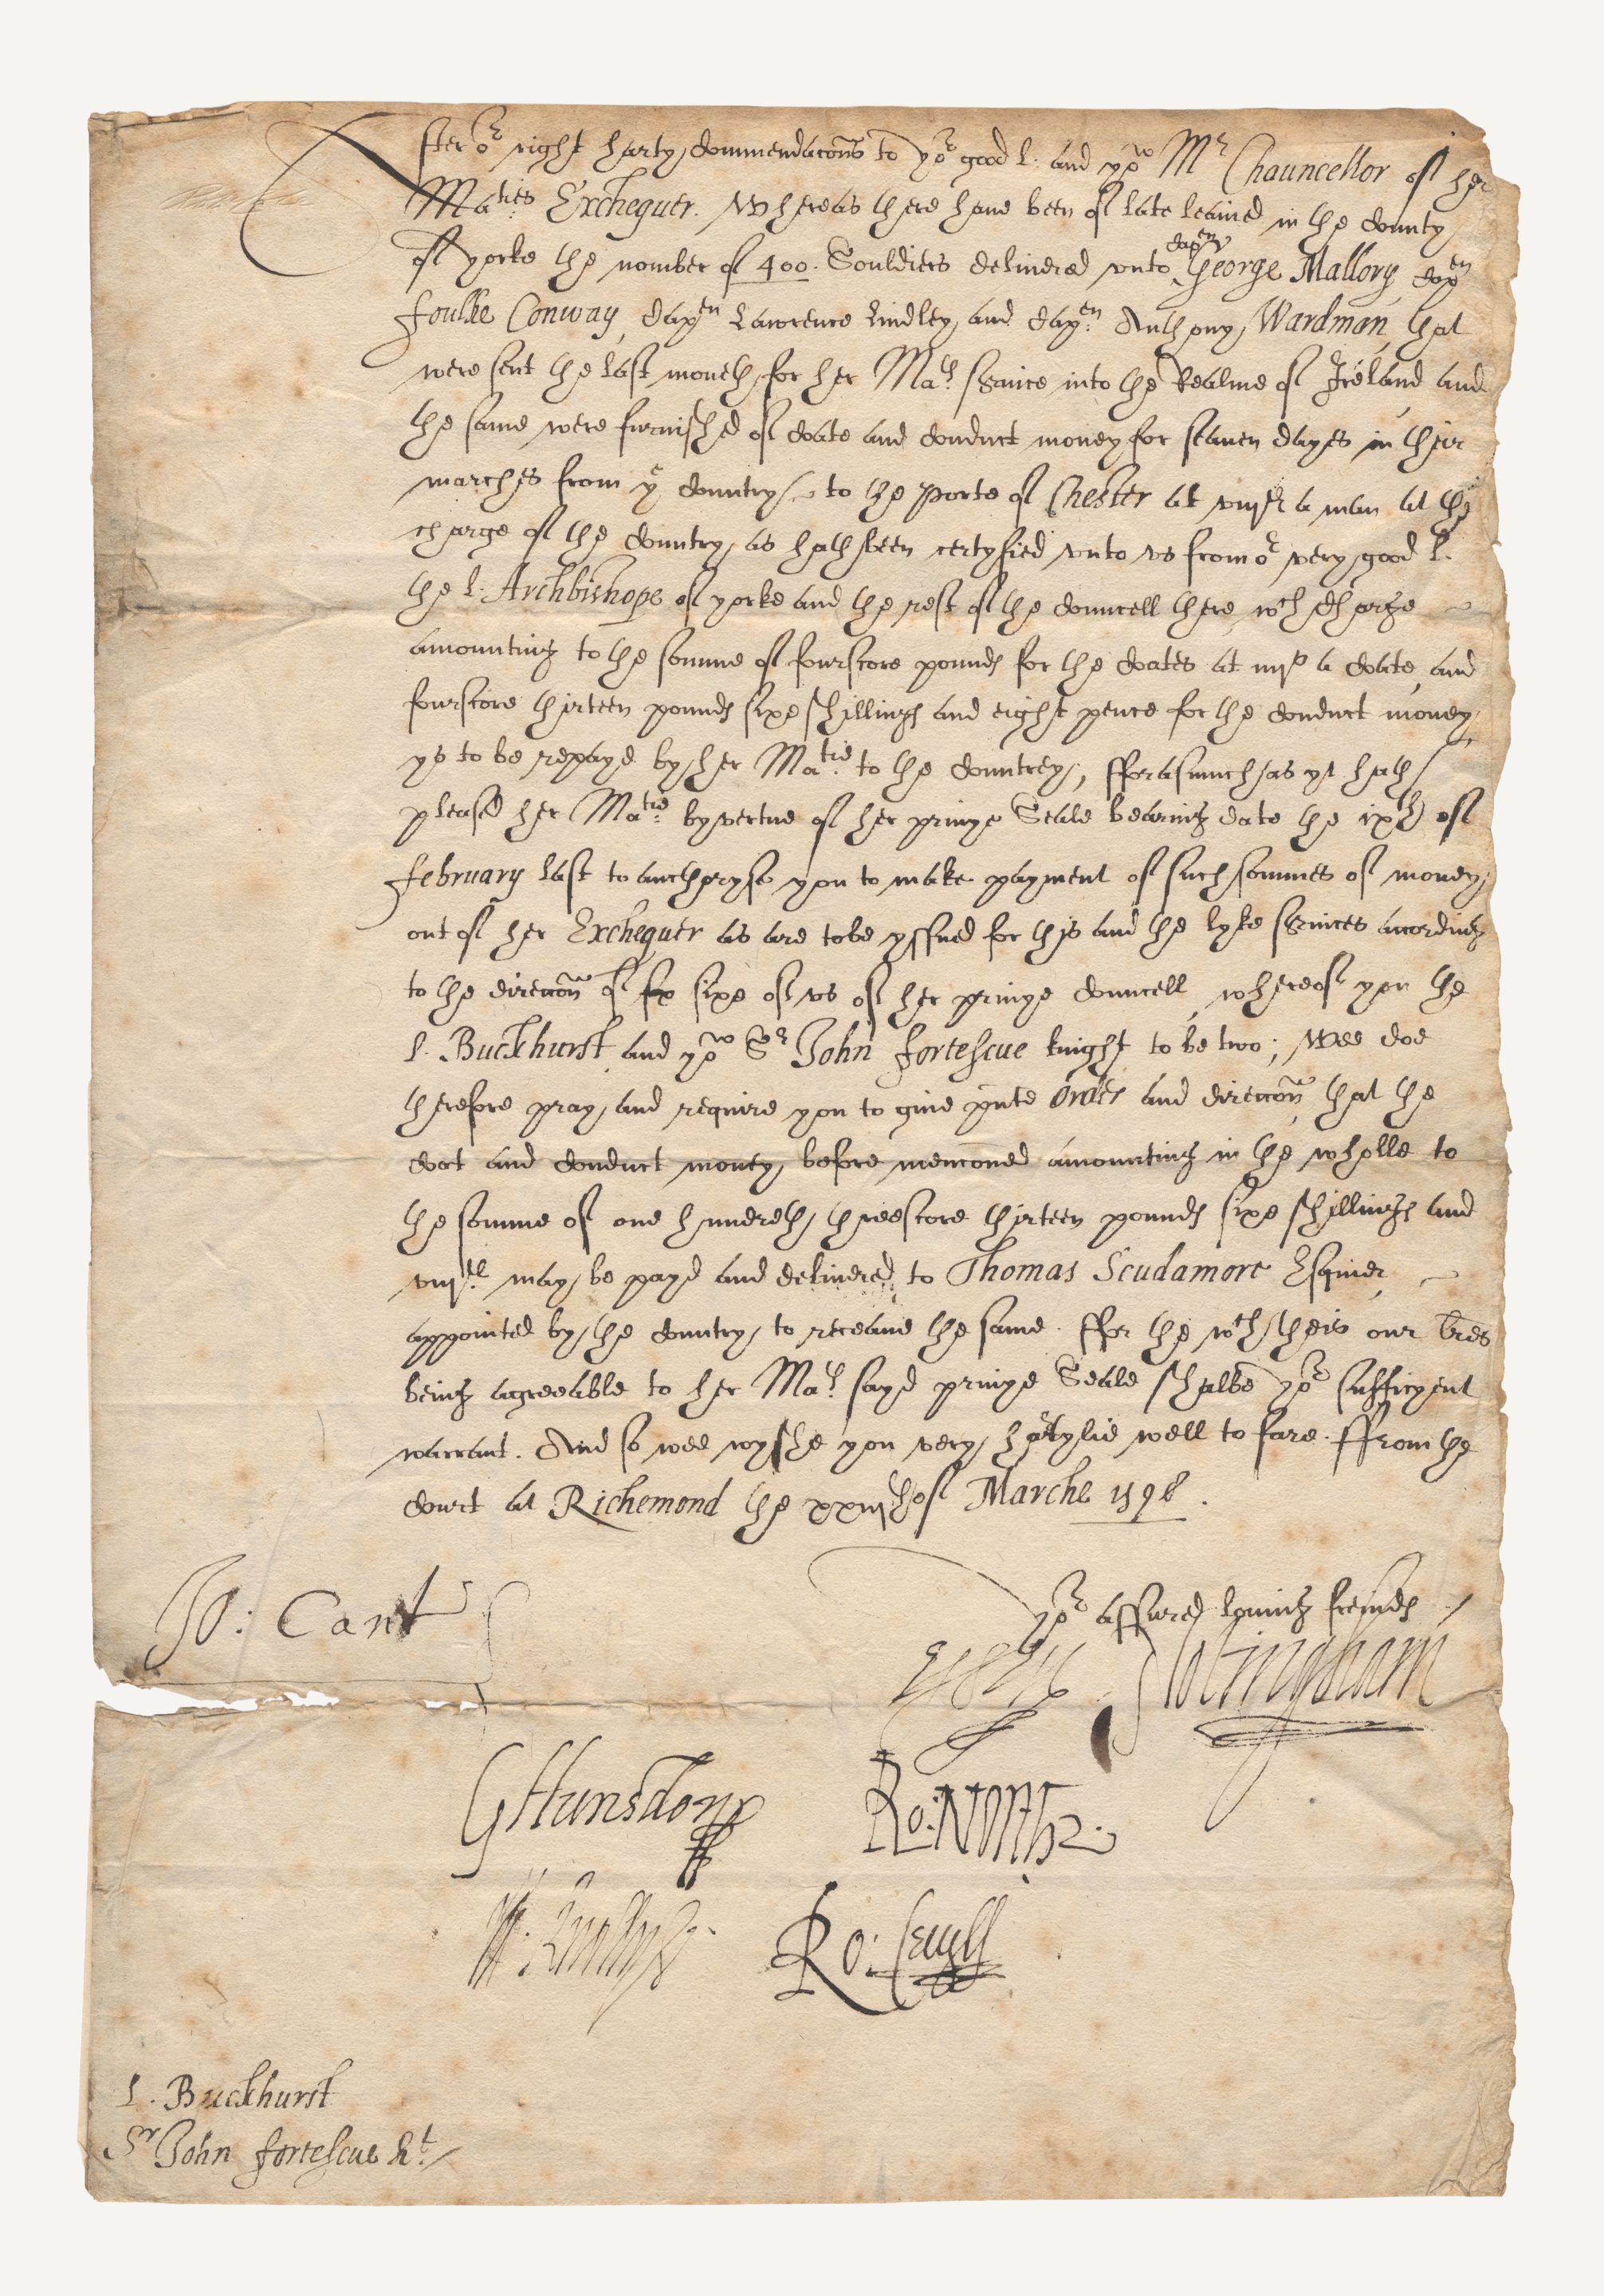 After o:r right harty Commendacons to yo:r good L. and yo:w M:r Chauncellor of her
Ma:ties Exchequer. Whereas there have been of late leavied in the County
of yorke the nomber of 400. Souldiers delivered unto Cap:en George Mallory, Cap:en
foulke Conway, Cap:en Lawrence Lindley, and Cap:en Anthony Wardman, that
were sent the last moneth, for her Ma:ts service into the Realme of Ireland and
the same were furnished of Coate and Conduct money for seaven dayes in their
marches from y:e Country to the Porte of Chester at viij:d a man at the
charge of the Country, as hath been certyfied unto us from o:r very good L.
the L. Archbishope of yorke and the rest of the Councell there, w:ch Charge
amounting to the somme of fourscore pounds for the Coates at iiij:s a Coate, and
fourscore thirteen pounds sixe shillings and eight pence for the Conduct money,
ys to be repayd by her Ma:tie to the Countrey; fforasmuch as yt hath
pleased her Ma:tie by vertue of her privye Seale bearing date the ix:th of
february last to aucthoryse you to make payment of such sommes of money,
out of her Exchequer as are to be yssued for this and the lyke services according
to the direccon of sixe of us of her privye Councell, whereof you the
L. Buckhurst, and yo:w S:r John fortescue knight to be two; Wee doe
therefore pray, and require you to give p:nte Order and direccon, that the
Coat and Conduct money, before mencioned amounting in the wholle to
the somme of one hundreth, threescore thirteen pounds sixe shillings and
viij:d may be payd and delivered to Thomas Scudamore Esquier
appointed by the Country, to receave the same. ffor the w:ch theis our l:res
being agreeable to her Ma:ts sayd privye Seale shalbe yo:r sufficyent
warrant. And so wee wyshe you very hartylie well to fare. ffrom the
Court at Richemond the xxiij:th of Marche 1598.
yo:r assured loving freinds
Jo: Cant
Notingham
GHunsdon
Ro: North
W: Knollys
Ro: Cecyll
L. Buckhurst
S:r John fortescue k:t